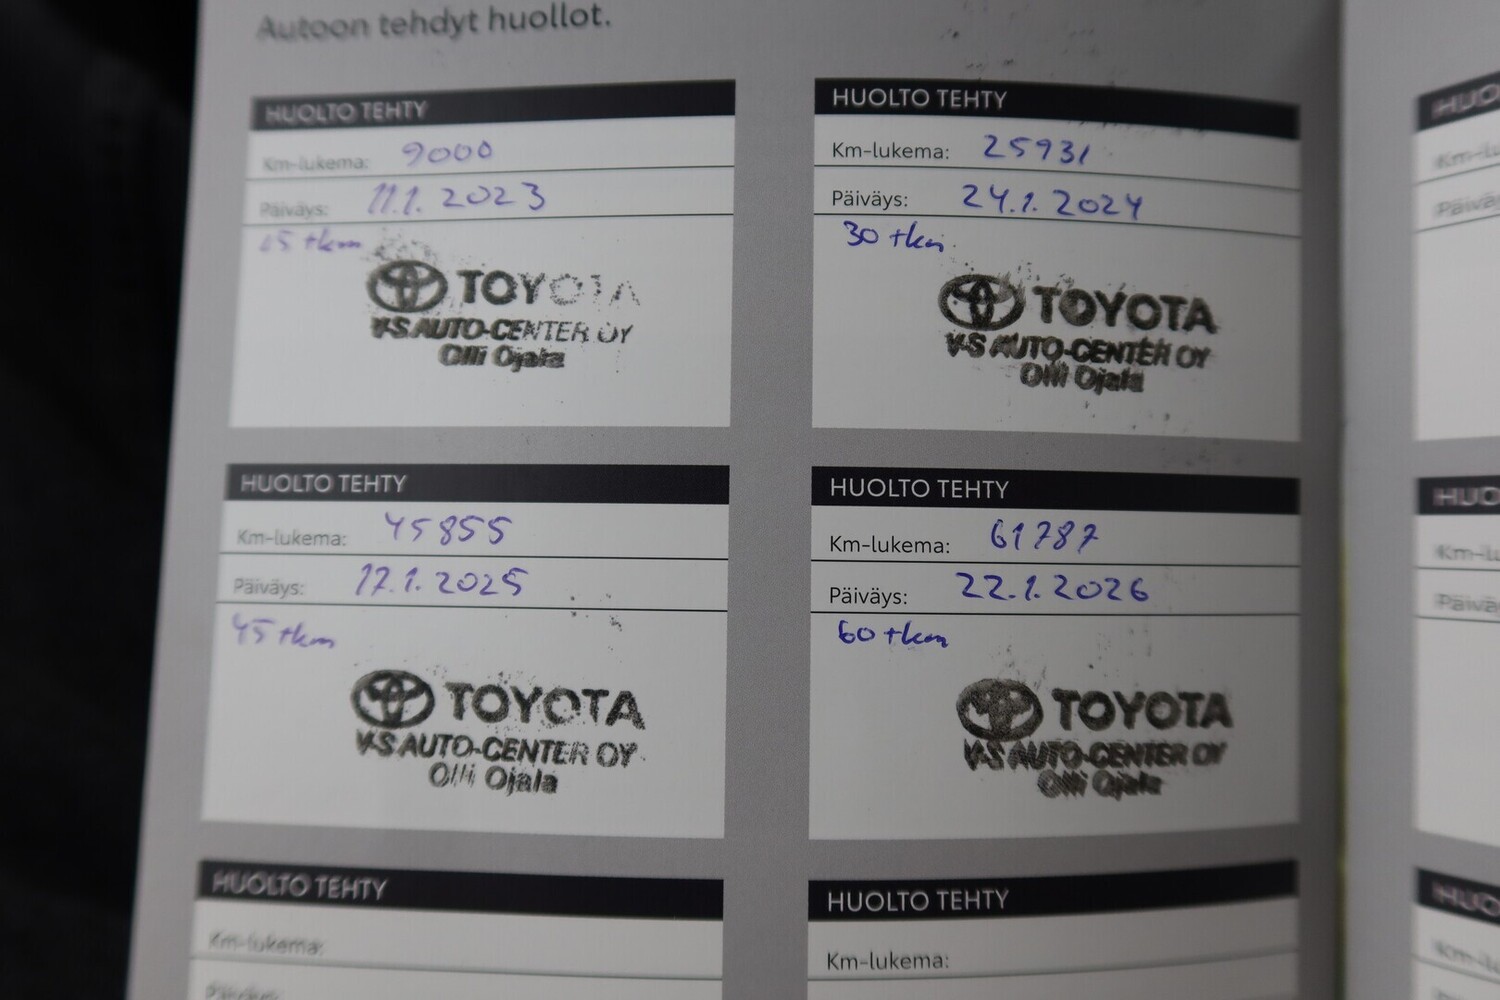 Autoon tehdyt huollot.
HUOLTO TEHTY
Km-lukema: 9000
Päiväys: 11.1. 2023
15 tkm
TOYOTA
V-S AUTO-CENTER OY
Olli Ojala
HUOLTO TEHTY
Km-lukema: 25931
Päiväys: 24.1. 2024
30 tkm
TOYOTA
V-S AUTO-CENTER OY
Olli Ojala
HUOLTO TEHTY
Km-lukema: 45855
Päiväys: 17.1. 2025
45 tkm
TOYOTA
V-S AUTO-CENTER OY
Olli Ojala
HUOLTO TEHTY
Km-lukema: 61787
Päiväys: 22.1. 2026
60 tkm
TOYOTA
V-S AUTO-CENTER OY
Olli Ojala
HUOLTO TEHTY
Km-lukema:
Päiväys:
HUOLTO TEHTY
Km-lukema: